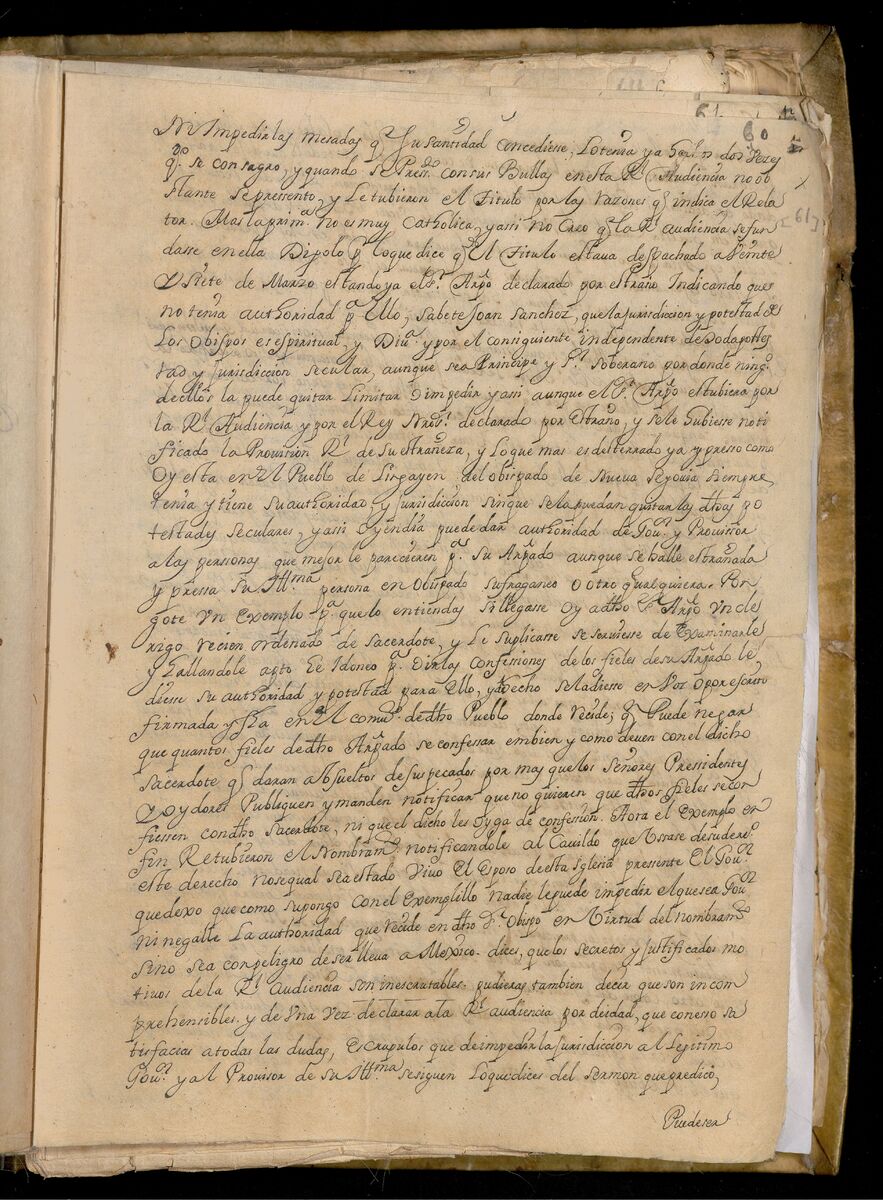 61
60
[61]
Ni Impedir las mesadas q̃ Su santidad Concediesse, Lo tenia ya
q.do se consagro, y quando se Press.do con sus Bullas en esta R.l Audiencia no ob
stante se pressento, y Le tubieron el Titulo por las razones q̃ indica el Rela
tor. Mas la prim.a no es muy Catholica, y assi no Creo q̃ la R.l audiencia se fun
dasse en ella Dipolo p.r lo que dice q̃ el Titulo estava despachado a Veinte
y Siete de Marzo estando ya el S.r Arp̃o declarado por estraño Indicando que
no tenia authoridad p.a Ello, sabete Joan Sanchez, que la jurisdiccion y potestad de
Los obispos es espiritual, y Diu.a y por el consiguiente independente de toda potes
tad y jurisdiccion secular, aunque sea Principe y S.r soberano por donde ning.o
de ellos la puede quitar Limitar O impedir y assi aunque el S.r Arp̃o estubiera por
la R.l Audiencia y por el Rey Nro S.r declarado por estraño, y se le hubiesse noti
ficado la Provision R.l de su estrañeza, y Lo que mas es desterrado ya y presso como
Oy esta en El Pueblo de Lingayen, del obispado de Nueva Segouia siempre
tenia y tiene su authoridad, y jurisdiccion sin que se la puedan quitar las dhas po
testades seculares, y assi Oy en dia puede dar authoridad de Gou.or y Provisor
a las personas que mejor le parecieren p.a su Arp̃ado aunque se halle estrañada
y pressa su Ill.ma persona en Obispado sufraganeo O otro qualquiera. Pon
gote Un Exemplo p.a que lo entiendas si llegasse Oy a dho S.r Arp̃o Un cle
rigo recien ordenado de sacerdote, y Le suplicasse se seruiesse de Examinarle
y hallandole apto Ee Idoneo p.a Oir las confesiones de los fieles de su Arp̃ado le
diesse su authoridad y potestad para Ello, y de hecho se la diesse en Voz O por escrito
firmada y fha en el comu.o de dho Pueblo donde recide; q.n Puede negar
que quantos fieles de dho Arp̃ado se confessar en bien y como deven con el dicho
sacerdote q̃ daran absueltos de sus pecados por mas que los Señores Pressidente
y Oydores Publiquen y manden notificar que no quieren que dhos fieles se con
fiessen con dho sacerdote, ni que el dicho les Oyga de confesion. Aora el Exemplo en
fin Retubieron el Nombram.to notificandole al Cauildo que Usase de su dere.o
este derecho no se qual sea estado Vivo El esposo de esta Iglesia pressente El Gou.or
que dexo que como supongo con el Exemplillo nadie le puede impedir el que sea Gou.or
ni negalle La authoridad que recide en dho S.r Obispo en Virtud del nombram.to
sino sea con peligro de ser lleua a Mexico. dices, que los secretos y justificados mo
tiuos de la R.l audiencia son inescrutables. pudieras tambien decir que son incom
prehensibles. y de Una Vez declarar a la R.l audiencia por deidad, que con esso sa
tisfacias a todas las dudas, escrupulos que de impedir la jurisdiccion al Legitimo
Gou.or y al Provisor de su Ill.ma se siguen Lo que dices del sermon que predico,
Puede ser